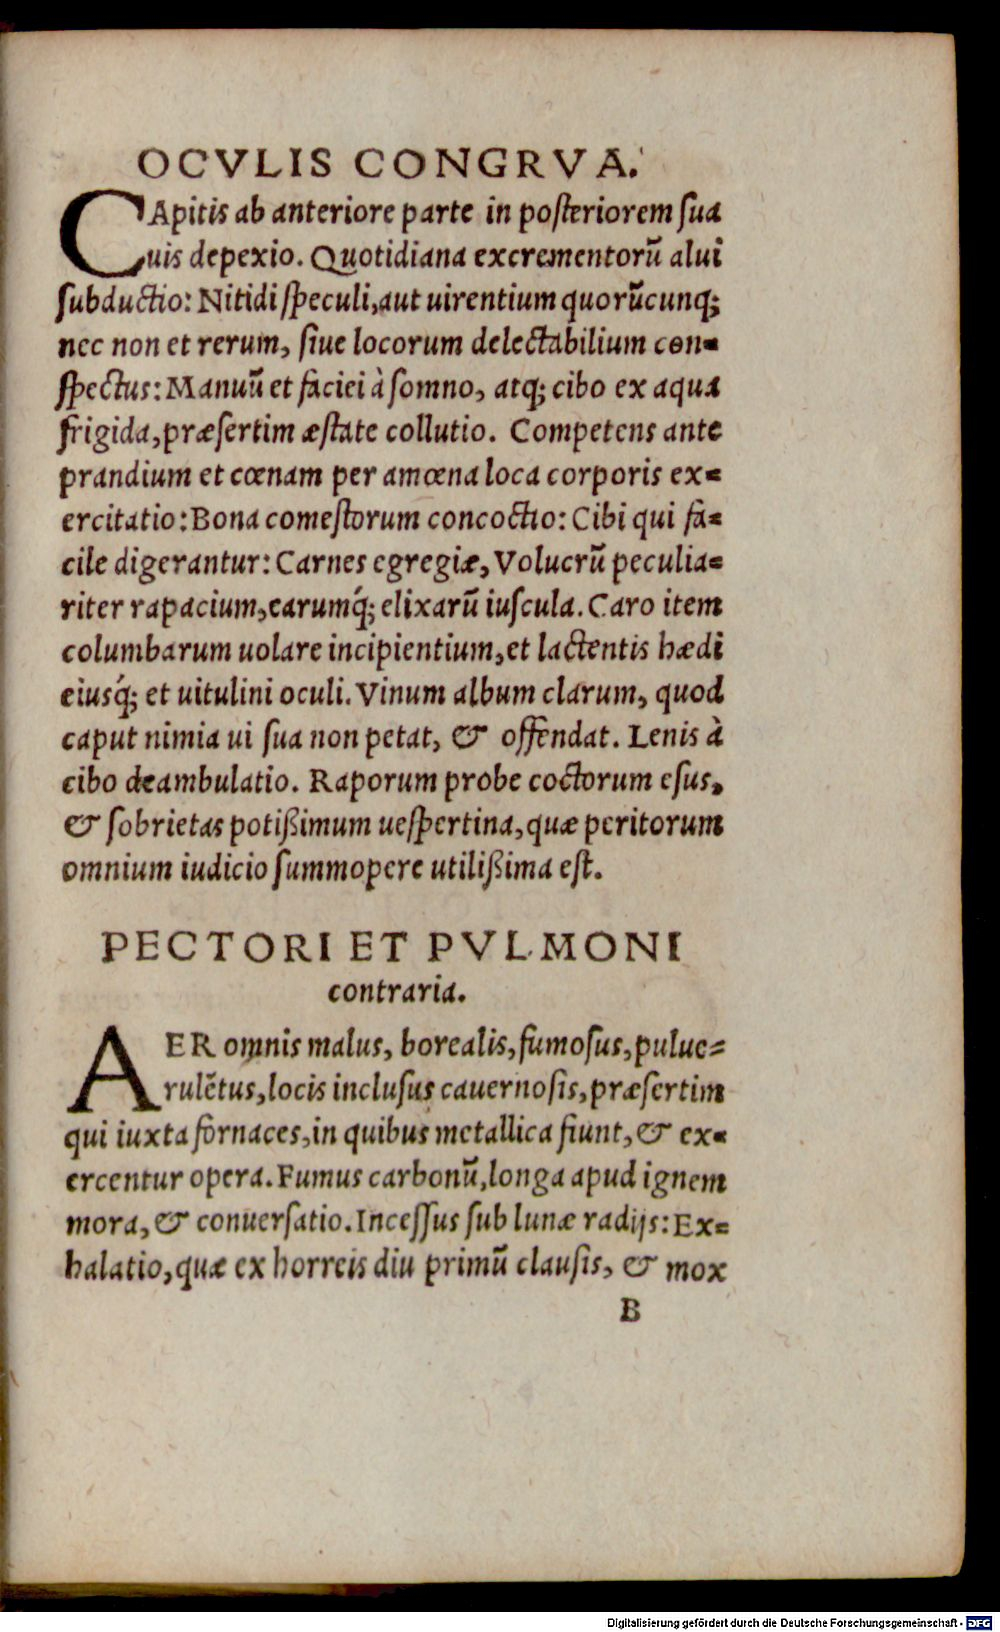 OCVLIS CONGRVA.
CApitis ab anteriore parte in posteriorem sua
uis depexio. Quotidiana excrementorũ alui
subductio: Nitidi speculi, aut uirentium quorũcunq;
nec non et rerum, siue locorum delectabilium con-
spectus: Manuũ et faciei à somno, atq; cibo ex aqua
frigida, præsertim æstate collutio. Competens ante
prandium et cœnam per amœna loca corporis ex-
ercitatio: Bona comestorum concoctio: Cibi qui fa-
cile digerantur: Carnes egregiæ, Volucrũ peculia-
riter rapacium, earumq́; elixarũ iuscula. Caro item
columbarum uolare incipientium, et lactentis hædi
eiusq́; et uitulini oculi. Vinum album clarum, quod
caput nimia ui sua non petat, & offendat. Lenis à
cibo deambulatio. Raporum probe coctorum esus,
& sobrietas potißimum uespertina, quæ peritorum
omnium iudicio summopere utilißima est.
PECTORI ET PVLMONI
contraria.
AER omnis malus, borealis, fumosus, pulue-
rulẽtus, locis inclusus cauernosis, præsertim
qui iuxta fornaces, in quibus metallica fiunt, & ex-
ercentur opera. Fumus carbonũ, longa apud ignem
mora, & conuersatio. Incessus sub lunæ radijs: Ex-
halatio, quæ ex horreis diu primũ clausis, & mox
B
Digitalisierung gefördert durch die Deutsche Forschungsgemeinschaft - DFG